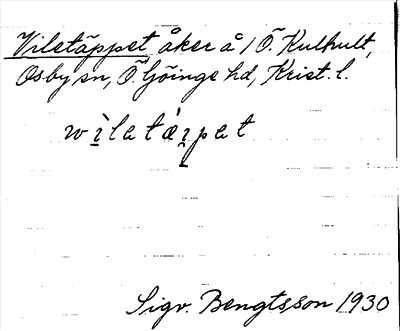 Viletäppet åker å 1 Ö. Kulhult,
Osby sn, Ö. Göinge hd, Krist. l.
wìletä́ı̯pet
Sigv. Bengtsson 1930